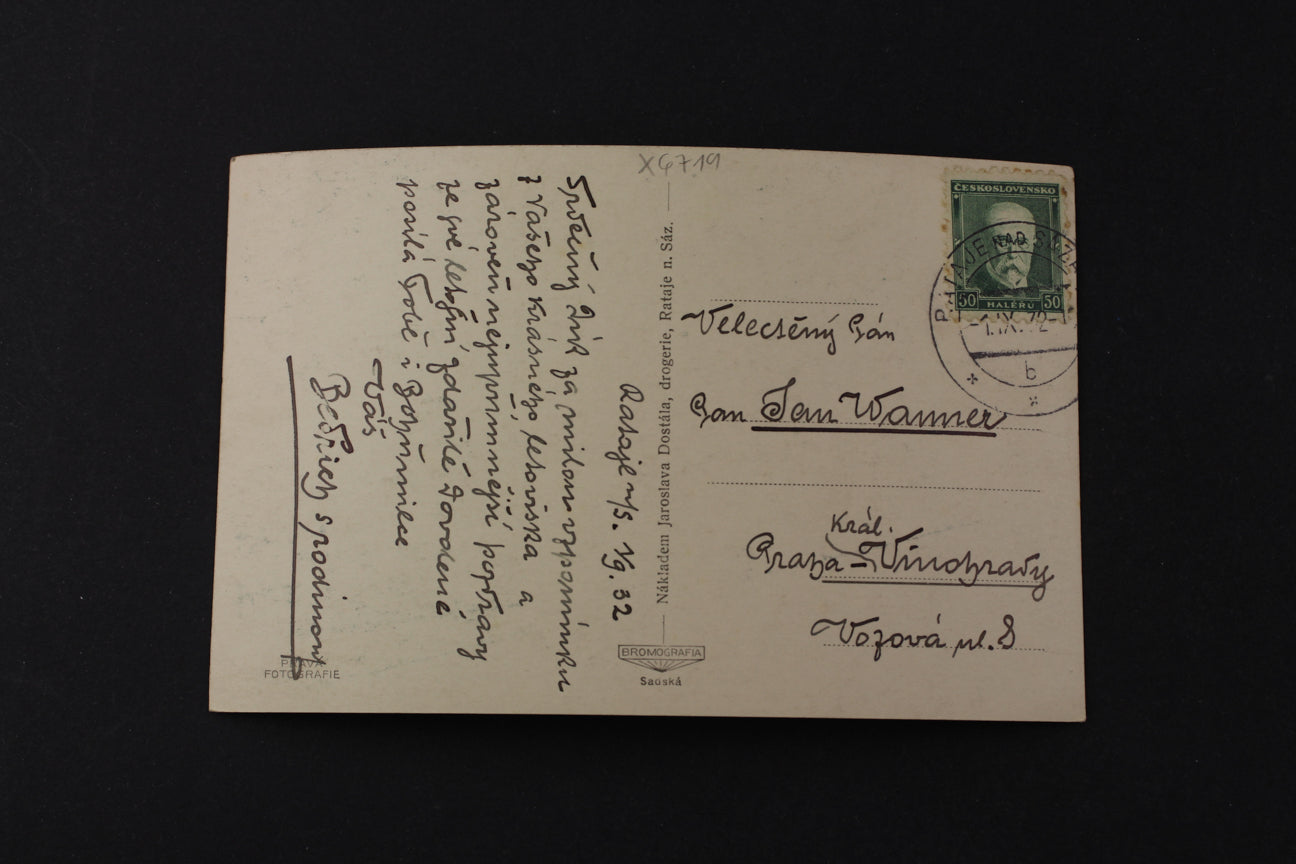 X4719
Rataje n/S. 1/9. 32
Srdečný dík za milou vzpomínku
z Vašeho krásného letoviska a
zároveň nejupřímnější pozdravy
ze své letošní zdařilé dovolené
posílá Tobě i Bohumilce
Váš
Bedřich s rodinou
PRAVÁ
FOTOGRAFIE
Nákladem Jaroslava Dostála, drogerie, Rataje n. Sáz.
BROMOGRAFIA
Sadská
ČESKOSLOVENSKO
50 HALÉŘŮ 50
RATAJE NAD SÁZ
b
Velectěný Pán
Pan Jan Wanner
Král.
Praha - Vinohrady
Vozová ul. 8